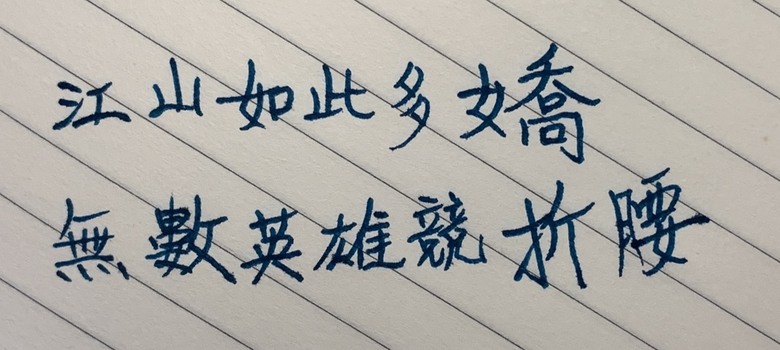 江山如此多嬌
無數英雄競折腰